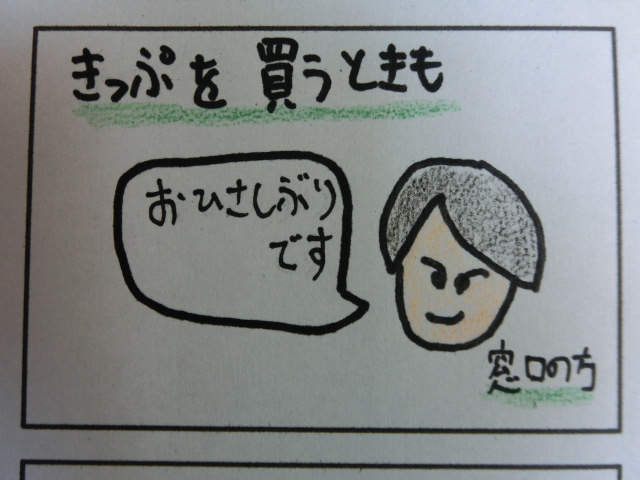 きっぷを買うときも
おひさしぶり
です
窓口の方